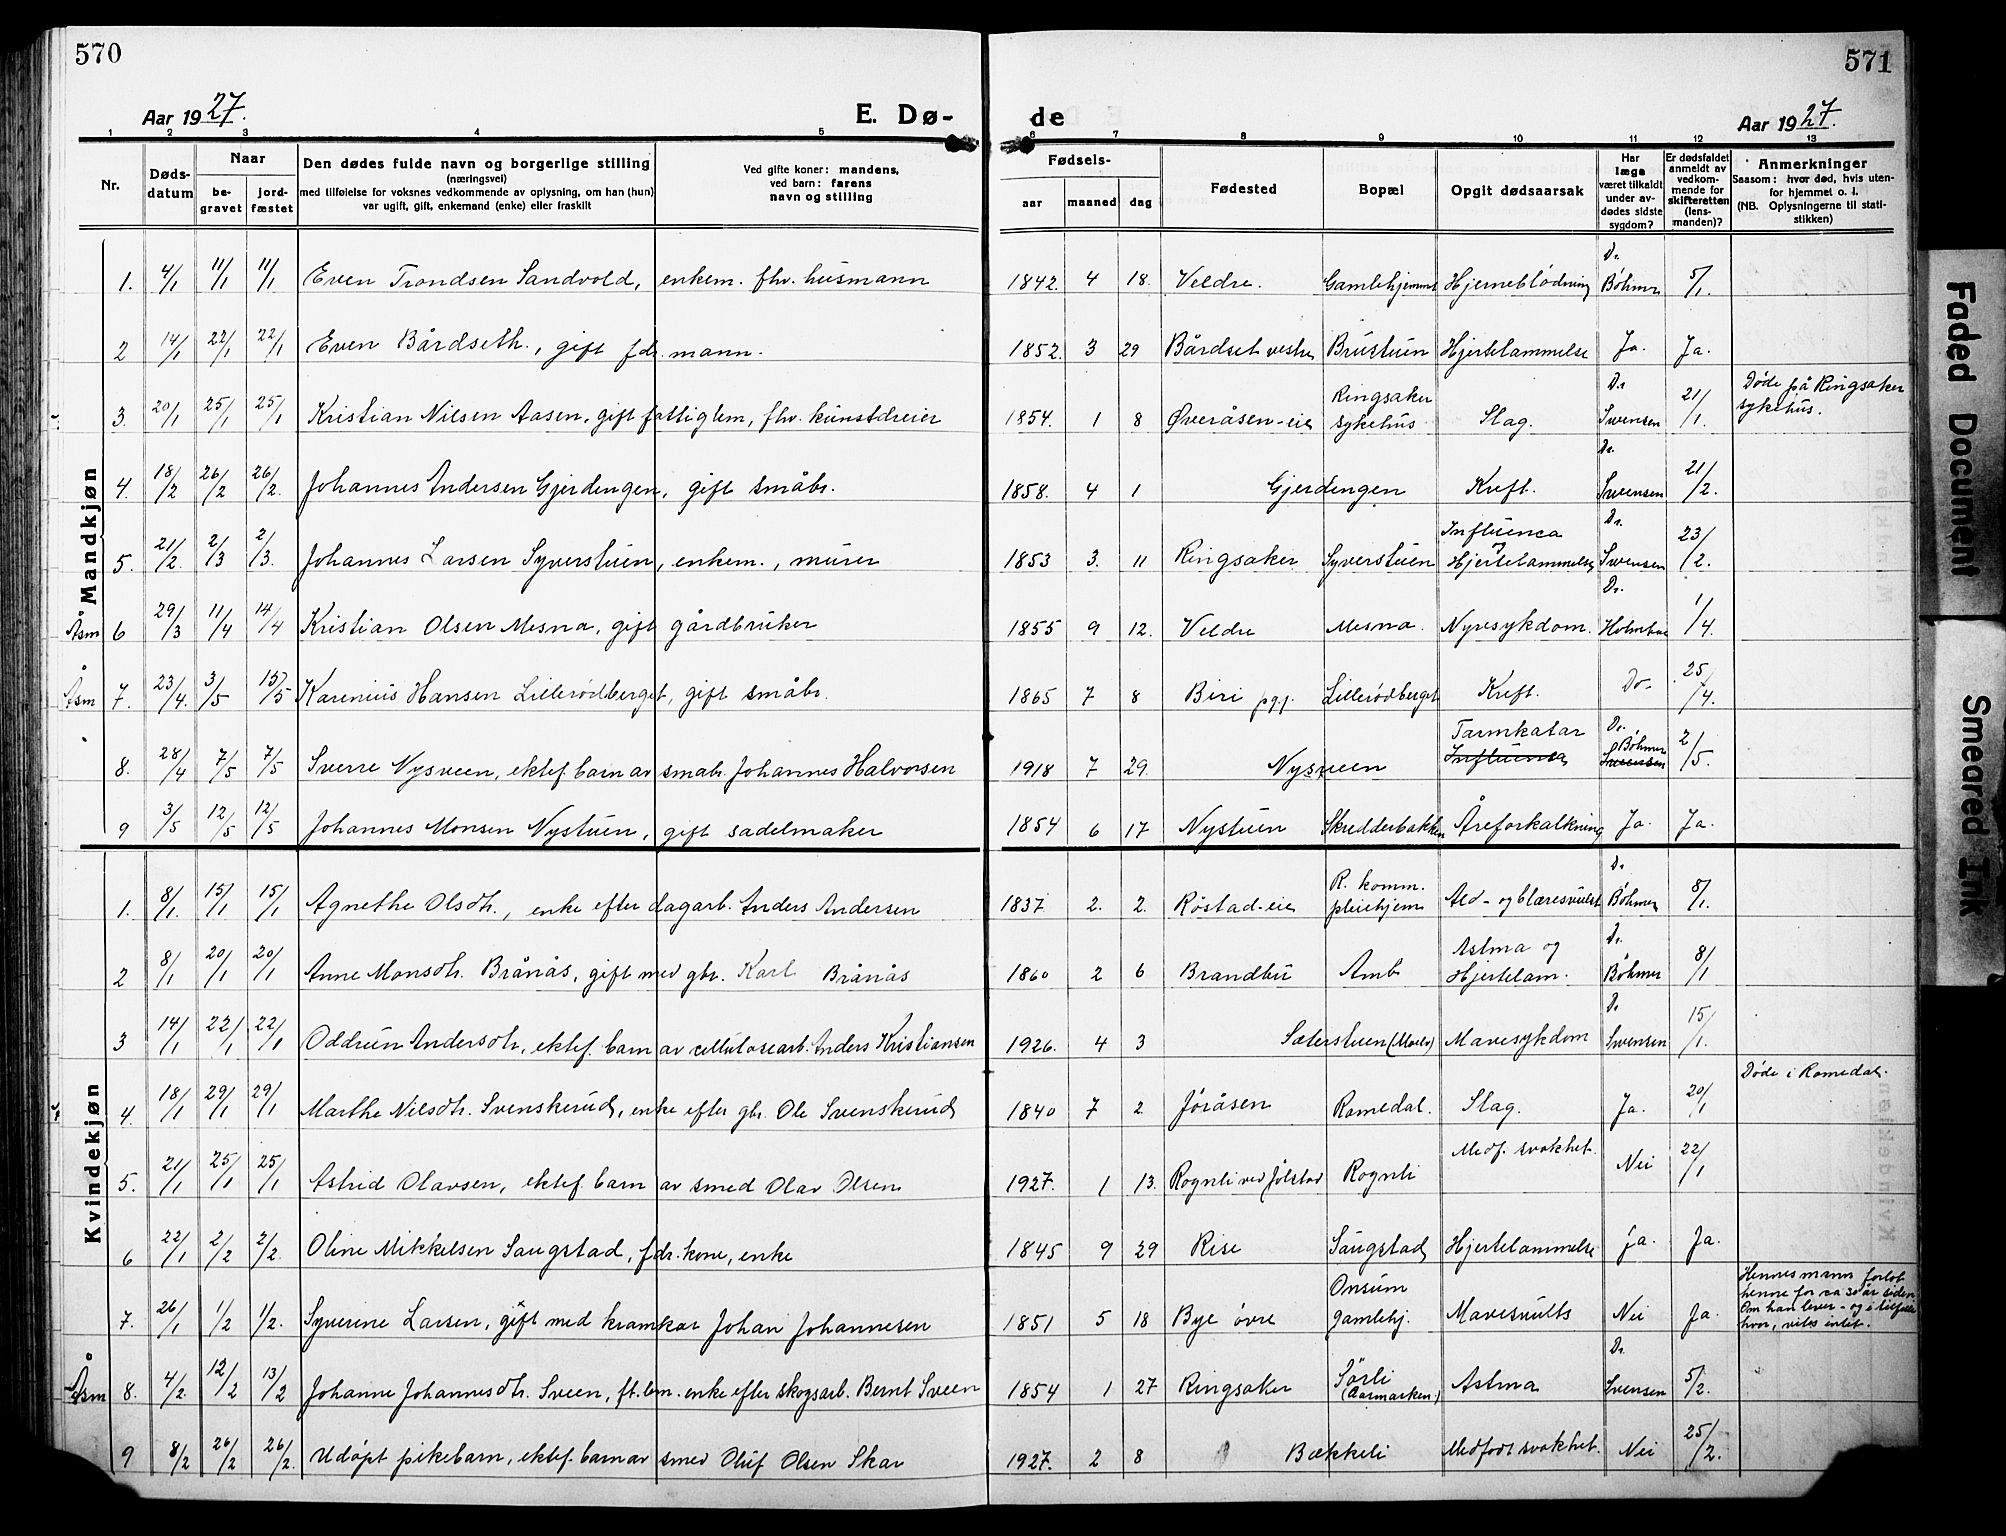 570
571
Aar 1927.
E. Dø-
de
Aar 1927.
1 2 3 4 5 6 7 8 9 10 11 12 13
Nr.
Døds-
datum
Naar
be-
gravet
jord-
fæstet
Den dødes fulde navn og borgerlige stilling
(næringsvei)
med tilføielse for voksnes vedkommende av oplysning, om han (hun)
var ugift, gift, enkemand (enke) eller fraskilt
Ved gifte koner: mandens,
ved barn: farens
navn og stilling
Fødsels-
aar maaned dag
Fødested
Bopæl
Opgit dødsaarsak
Har
læge
været tilkaldt
under av-
dødes sidste
sygdom?
Er dødsfaldet
anmeldt av
vedkom-
mende for
skifteretten
(lens-
manden)?
Anmerkninger
Saasom: hvor død, hvis uten-
for hjemmet o. l.
(NB. Oplysningerne til stati-
stikken)
Mandkjøn
1. 4/1 11/1 11/1 Even Trondsen Sandvold, enkem. fhv. husmann 1842. 4 18. Veldre. Gamlehjemmet Hjerneblödning Dr. Böhmer 5/1.
2 14/1 22/1 22/1 Even Bårdseth., gift fdr. mann. 1852. 3 29 Bårdset vestre Brustuen Hjertelammelse Ja. Ja.
3. 20/1 25/1 25/1 Kristian Nilsen Aasen, gift fattiglem, fhv. kunstdreier 1854. 1 8 Øveråsen-eie Ringsaker sykehus Slag. Dr Svensen 21/1. Døde på Ringsaker sykehus.
4. 18/2 26/2 26/2. Johannes Andersen Gjerdengen, gift småbr. 1858. 4 1 Gjerdengen Kreft. Dr. Svensen 21/2.
5. 21/2. 2/3 2/3. Johannes Larsen Syverstuen, enkem., murer 1853 3. 11 Ringsaker Syverstuen Influenca Hjertelammelse Dr. Svensen 23/2.
Åsm 6 29/3 11/4 14/4 Kristian Olsen Mesna, gift gårdbruker 1855 9 12. Veldre Mesna. Nyresykdom. Dr. Holmboe 1/4.
Åsm 7. 23/4. 3/5 15/5 Karenius Hansen Lillerødberget, gift småbr. 1865 7 8 Biri pgj. Lillerødberget Kreft. Do- 25/4.
8. 28/4 7/5 7/5 Sverre Nysveen, ektef. barn av småbr. Johannes Halvorsen 1918 7 29. Nysveen Tarmkatar Influenca Dr. Böhmer Svensen 2/5.
9 3/5 12/5 12/5 Johannes Monsen Nystuen, gift sadelmaker 1854 6 17 Nystuen Skredderbakken Åreforkalkning Ja. Ja.
Kvindekjøn
1. 8/1. 15/1 15/1 Agnethe Olsdtr., enke efter dagarb. Anders Andersen 1837 2. 2. Røstad-eie R. komm. pleiehjem Ald- og blæresvulst Dr. Böhmer 8/1.
2 8/1 20/1 20/1 Anne Monsdtr. Brånås, gift med gbr. Karl Brånås 1860 2 6 Brandbu Amb Astma og Hjertelam. Dr. Böhmer 8/1
3 14/1 22/1 22/1 Oddrun Andersdtr, ektef. barn av cellulosearb. Anders Kristiansen 1926. 4 3 Sæterstuen (Moelv) Mavesykdom Dr Svensen 15/1.
4. 18/1 29/1 29/1 Marthe Nilsdtr. Svenskerud, enke efter gbr. Ole Svenskerud 1840 7 2 Jøråsen Romedal. Slag. Ja. 20/1 Døde i Romedal.
5. 21/1 25/1 25/1 Astrid Olavsen, ektef. barn av smed Olav Olsen 1927. 1 13. Rognli ved Jølstad Rognli Medf. svakhet. Nei 22/1
6 22/1 2/2 2/2. Oline Mikkelsen Saugstad, fdr. kone, enke 1845 9 29 Rise Saugstad Hjertelammelse Ja. Ja.
7. 26/1 1/2 1/2. Syverine Larsen, gift med kramkar Johan Johannesen 1851 5 18 Bye øvre Onsum gamlehj. Mavesvulst Nei Ja. Hennes mann forlot henne for ca 30 år siden Om han lever - og i tilfelle hvor, vites intet.
Åsm 8. 4/2. 12/2 13/2 Johanne Johannesdtr. Sveen, ft.lem. enke efter skogsarb. Bernt Sveen 1854 1 27 Ringsaker Sørli (Aasmarken.) Astma Dr Svensen 5/2.
9 8/2 26/2 26/2. Udøpt pikebarn, ektef. barn av smed Oluf Olsen Skar 1927. 2 8 Bækkeli Medfødt svakhet. Nei 25/2.
Faded Document
Smeared Ink